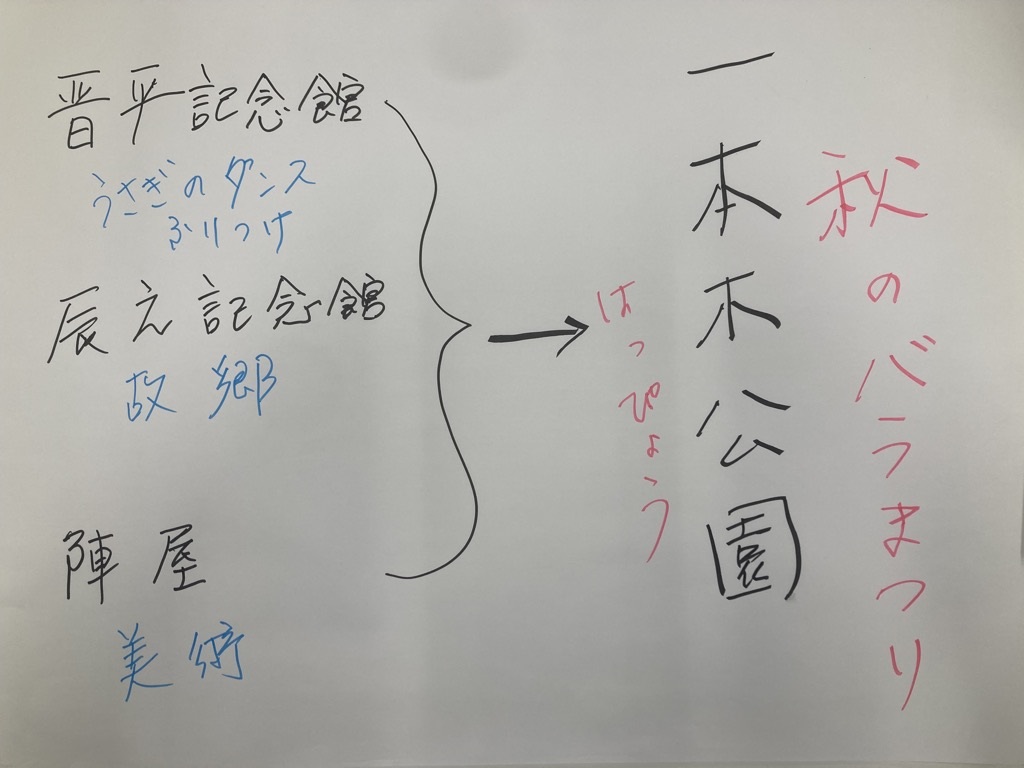 晋平記念館
うさぎのダンス
ふりつけ
辰之記念館
故郷
陣屋
美術
はっぴょう
一本木公園
秋のバラまつり